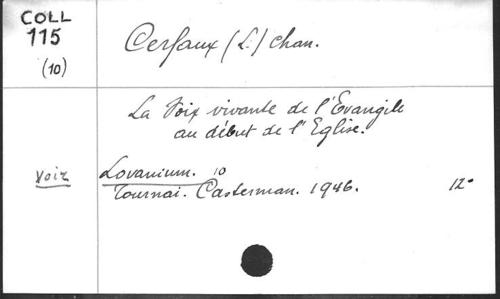 COLL
115
(10)
Cerfaux (L.) chan.
La Voix vivante de l'Evangile
au début de l'Eglise.
Voir
Lovanium. 10
Tournai. Casterman. 1946.
12°